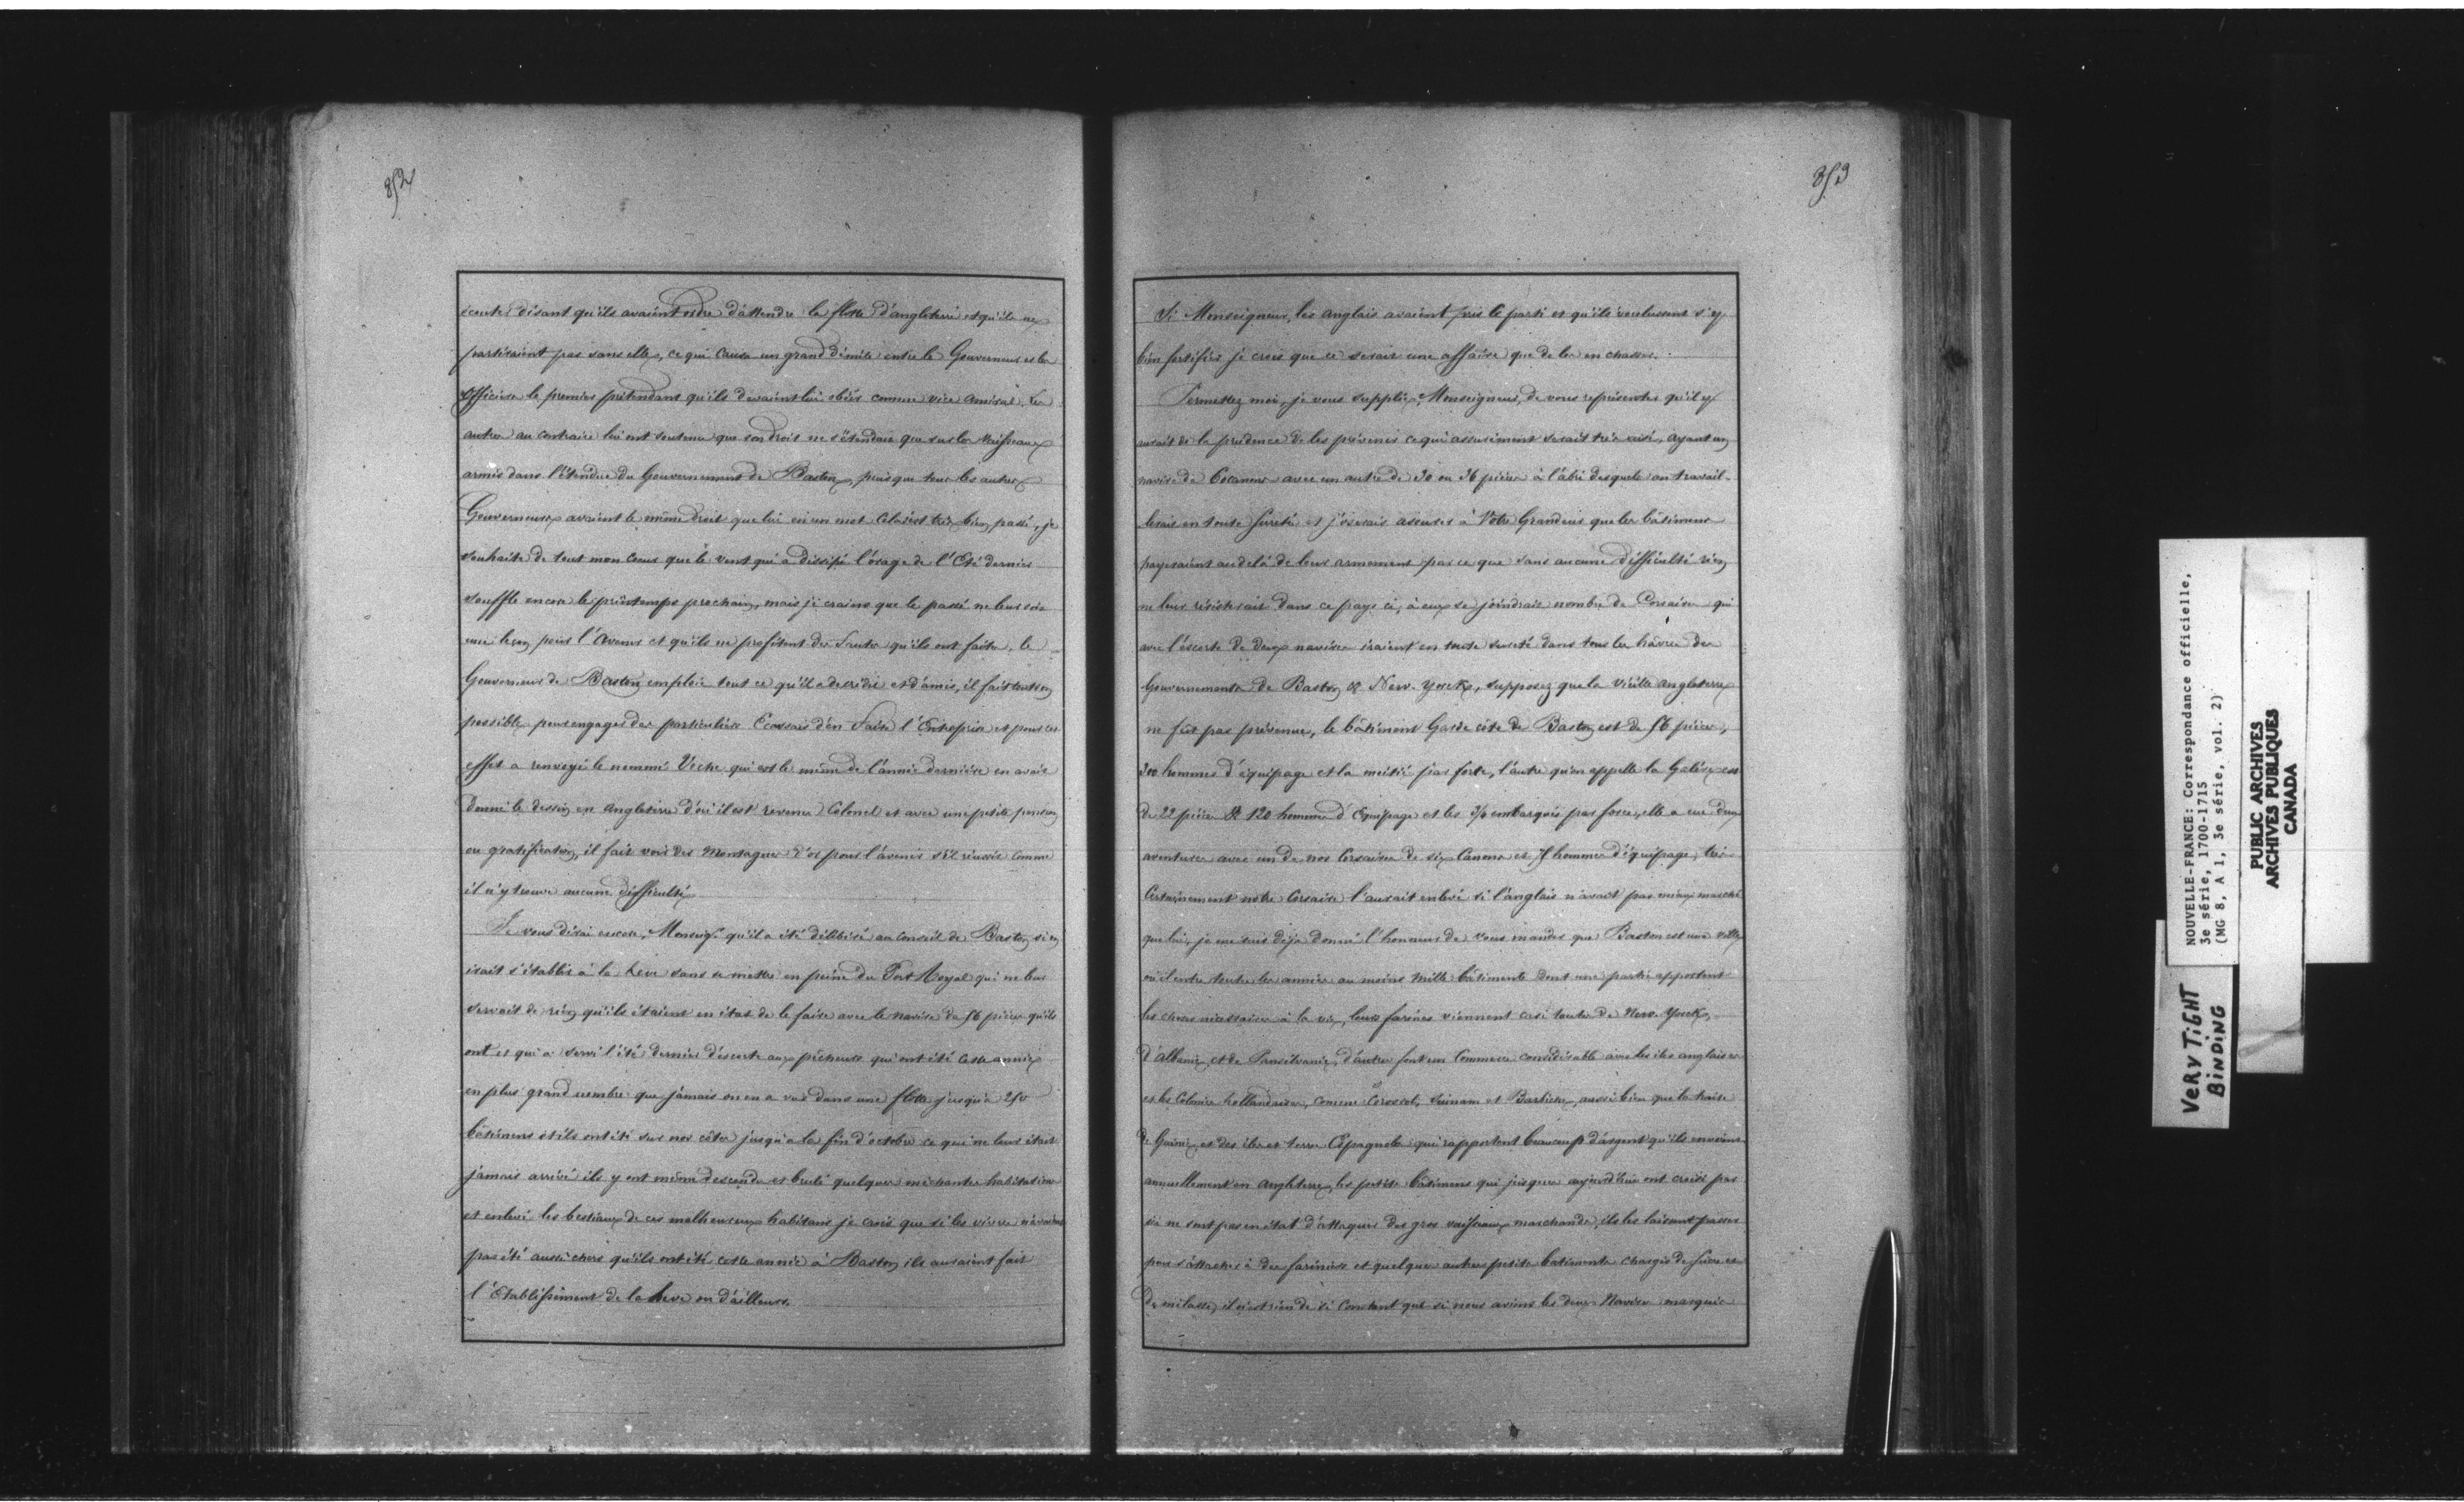 852
écouter disant qu'ils avaient ordre d'attendre la flotte d'angleterre et qu'ils ne
partiraient pas sans elle, ce qui causa un grand démêlé entre le Gouverneur et les
officiers le premier prétendant qu'ils devaient lui obéir comme vice amiral. Les
autres au contraire lui ont soutenu que son droit ne s'étendait que sur les Vaisseaux
armés dans l'étendue du Gouvernement de Baston, puisque tous les autres
Gouverneurs avaient le même droit que lui en un mot cela s'est très bien passé, je
souhaite de tout mon coeur que le vent qui a dissipé l'orage de l'Eté dernier
souffle encore le printemps prochain, mais je crains que le passé ne leur soit
une leçon pour l'avenir et qu'ils ne profitent des fautes qu'ils ont faites, le
Gouverneur de Baston emploie tout ce qu'il a de crédit et d'amis, il fait tout son
possible pour engager des particuliers Ecossais d'en faire l'Entreprise et pour cet
effet a renvoyé le nommé Veche qui est le même de l'année dernière en avait
donné le dessin en angleterre d'où il est revenu Colonel et avec une petite pension
ou gratification, il fait voir des Montagnes d'or pour l'avenir s'il réussit comme
il n'y trouve aucune difficulté
Je vous dirai encore, Monseigr. qu'il a été délibéré au conseil de Baston si on
irait s'établir à la heve sans se mettre en peine du Port Royal qui ne leur
servait de rien qu'ils étaient en état de le faire avec le navire de 56 pièces qu'ils
ont et qui a servi l'été dernier d'escorte aux pêcheurs qui ont été cette année
en plus grand nombre que jamais on en a vus dans une flotte jusqu'à 250
bâtimens et ils ont été sur nos côtes jusqu'à la fin d'octobre ce qui ne leur était
jamais arrivé ils y ont même descendu et brulé quelques méchantes habitations
et enlevé les bestiaux de ces malheureux habitans je crois que si les vivres n'avaient
pas été aussi chers qu'ils ont été cette année à Baston ils auraient fait
l'Etablissement de la heve ou d'ailleurs.
853
Si Monseigneur, les anglais avaient pris le parti et qu'ils voulussent s'y
bien fortifier je crois que ce serait une affaire que de les en chasser.
Permettez moi, je vous supplie, Monseigneur, de vous représenter qu'il y
aurait de la prudence de les prévenir ce qui assurément serait très aisé, ayant un
navire de 60 canons avec un autre de 30 ou 36 pièces à l'abri desquels on travail-
lerait en toute sureté et j'oserais assurer à Votre Grandeur que les bâtimens
payeraient au delà de leur armement par ce que sans aucune difficulté rien
ne leur résisterait dans ce pays ci, à eux se joindrait nombre de Corsaires qui
avec l'escorte de deux navires iraient en toute sureté dans tous les hâvres des
Gouvernements de Baston & New-Yorck, supposez que la vieille angleterre
ne fut pas prévenue, le bâtiment Garde côte de Baston est de 56 pièces,
300 hommes d'équipage et la moitié par force, l'autre qu'on appelle la Galère est
de 22 pièces & 120 hommes d'Equipage et les 3/4 embarqués par force, elle a eue deux
aventures avec un de nos Corsaires de six Canons et 75 hommes d'équipage, très
Certainement notre Corsaire l'aurait enlevé si l'anglais n'avait pas mieux marché
que lui, je me suis déjà donné l'honneur de vous mander que Baston est une ville
où il entre toutes les années au moins mille bâtiments dont une partie apportent
les choses nécessaires à la vie, leurs farines viennent casi toutes de New-Yorck,
d'albanie, et de Pansilvanie, d'autres font un Commerce considérable avec les iles anglaises
et les Colonies hollandaises, comme Corossol, Surinam et Barbiche, aussi bien que la traite
de Guinée et des iles et terre Espagnole qui rapportent beaucoup d'argent qu'ils envoient
annuellement en angleterre, les petits bâtimens qui jusques aujourd'hui ont croisé par
ici ne sont pas en état d'attaquer des gros vaisseaux marchands, ils les laissent passer
pour s'attacher à des fariniers et quelques autres petits batiments chargés de sucre et
de mélasse, il n'est rien de si Constant que si nous avions les deux Navires marqués
NOUVELLE-FRANCE: Correspondance officielle,
3e série, 1700-1715
(MG 8, A 1, 3e série, vol. 2)
PUBLIC ARCHIVES
ARCHIVES PUBLIQUES
CANADA
VERY TIGHT
BINDING